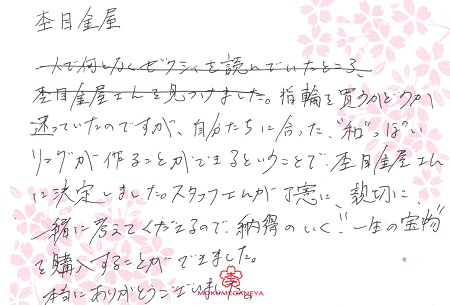 杢目金屋
一人で何となくゼクシィを読んでいたところ、
杢目金屋さんを見つけました。指輪を買うかどうか
迷っていたのですが、自分たちに合った“和”っぽい
リングが作ることができるということで、杢目金屋さん
に決定しました。スタッフさんが丁寧に、親切に、
一緒に考えてくださるので、納得のいく“一生の宝物”
を購入することができました。
本当にありがとうございました。
MOKUMEGANEYA